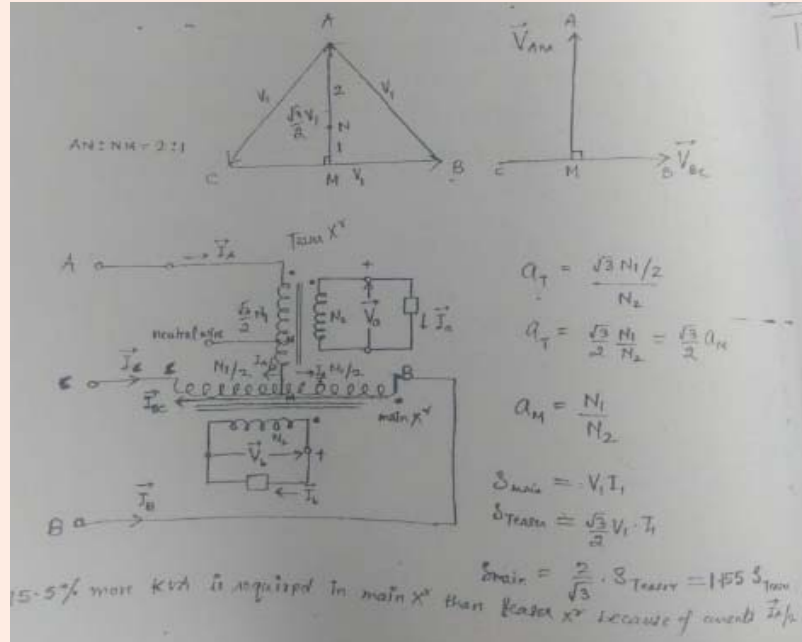 A
V₁
V₁
2
√3/2 V₁
N
1
AN : NM = 2 : 1
C
M
V₁
B
V⃗_AM
A
C
M
B
V⃗_BC
A
I⃗_A
√3/2 N₁
N₂
V⃗_a
+
I⃗_a
neutral wire
N₁/2
N₁/2
B
I⃗_BC
M
main x^r
N₂
V⃗_b
+
I⃗_b
I⃗_B
B
a_T = √3 N₁/2 / N₂
a_T = √3/2 N₁/N₂ = √3/2 a_M
a_M = N₁/N₂
S_main = V₁ I₁
S_Teaser = √3/2 V₁ · I₁
S_main = 2/√3 · S_Teaser = 1.155 S_Teaser
15.5% more KVA is required in main x^r than teaser x^r because of currents I⃗_A/2